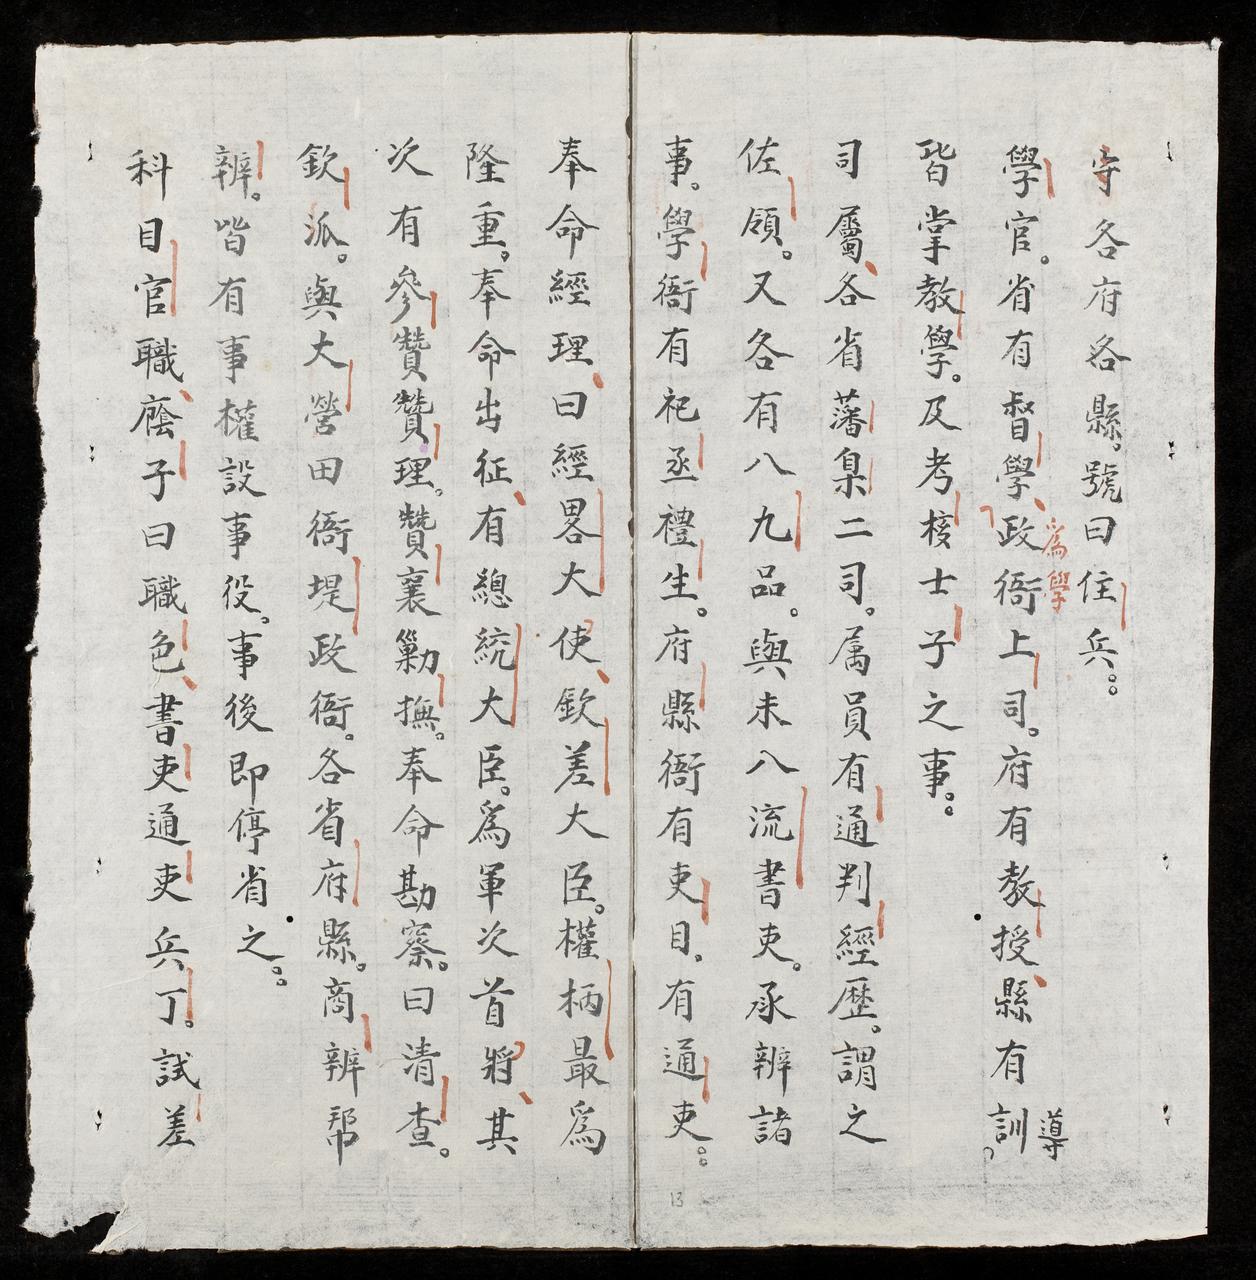 守各府各縣。號曰住兵。。
學官。省有督學、政衙上司。府有教授、縣有訓導。
為學
皆掌教學。及考核士子之事。。
司屬、各省藩臬二司。属員有通判經歷。謂之
佐領。又各有八九品。與未八流書吏。承辨諸
事。學衙有祀丞禮生。府縣衙有吏目。有通吏。。
奉命經理、曰經畧大使、欽差大臣。權柄最為
隆重。奉命出征、有總統大臣。為軍次首將、其
次有參贊贊理。贊襄勦撫。奉命勘察。曰清查。
欽派。與大營田衙堤政衙。各省府縣。商辨帮
辨。皆有事權設事役。事後即停省之。。
科目官職、廕子曰職色、書吏通吏兵丁。試差
13